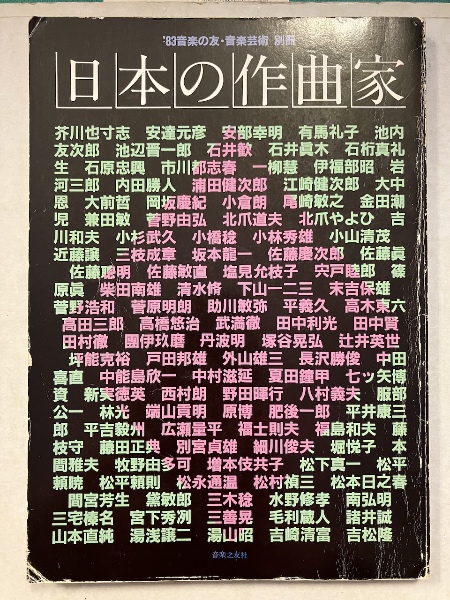 '83音楽の友・音楽芸術 別冊
日本の作曲家
芥川也寸志 安達元彦 安部幸明 有馬礼子 池内
友次郎 池辺晋一郎 石井歓 石井眞木 石桁真礼
生 石原忠興 市川都志春 一柳慧 伊福部昭 岩
河三郎 内田勝人 浦田健次郎 江崎健次郎 大中
恩 大前哲 岡坂慶紀 小倉朗 尾崎敏之 金田潮
児 兼田敏 菅野由弘 北爪道夫 北爪やよひ 吉
川和夫 小杉武久 小橋稔 小林秀雄 小山清茂
近藤譲 三枝成章 坂本龍一 佐藤慶次郎 佐藤眞
佐藤聰明 佐藤敏直 塩見允枝子 宍戸睦郎 篠
原眞 柴田南雄 清水脩 下山一二三 末吉保雄
菅野浩和 菅原明朗 助川敏弥 平義久 高木東六
高田三郎 高橋悠治 武満徹 田中利光 田中賢
田村徹 團伊玖磨 丹波明 塚谷晃弘 辻井英世
坪能克裕 戸田邦雄 外山雄三 長沢勝俊 中田
喜直 中能島欣一 中村滋延 夏田鐘甲 七ツ矢博
資 新実徳英 西村朗 野田暉行 八村義夫 服部
公一 林光 端山貢明 原博 肥後一郎 平井康三
郎 平吉毅州 広瀬量平 福士則夫 福島和夫 藤
枝守 藤田正典 別宮貞雄 細川俊夫 堀悦子 本
間雅夫 牧野由多可 増本伎共子 松下真一 松平
頼暁 松平頼則 松永通温 松村禎三 松本日之春
間宮芳生 黛敏郎 三木稔 水野修孝 南弘明
三宅榛名 宮下秀冽 三善晃 毛利蔵人 諸井誠
山本直純 湯浅譲二 湯山昭 吉崎清富 吉松隆
音楽之友社